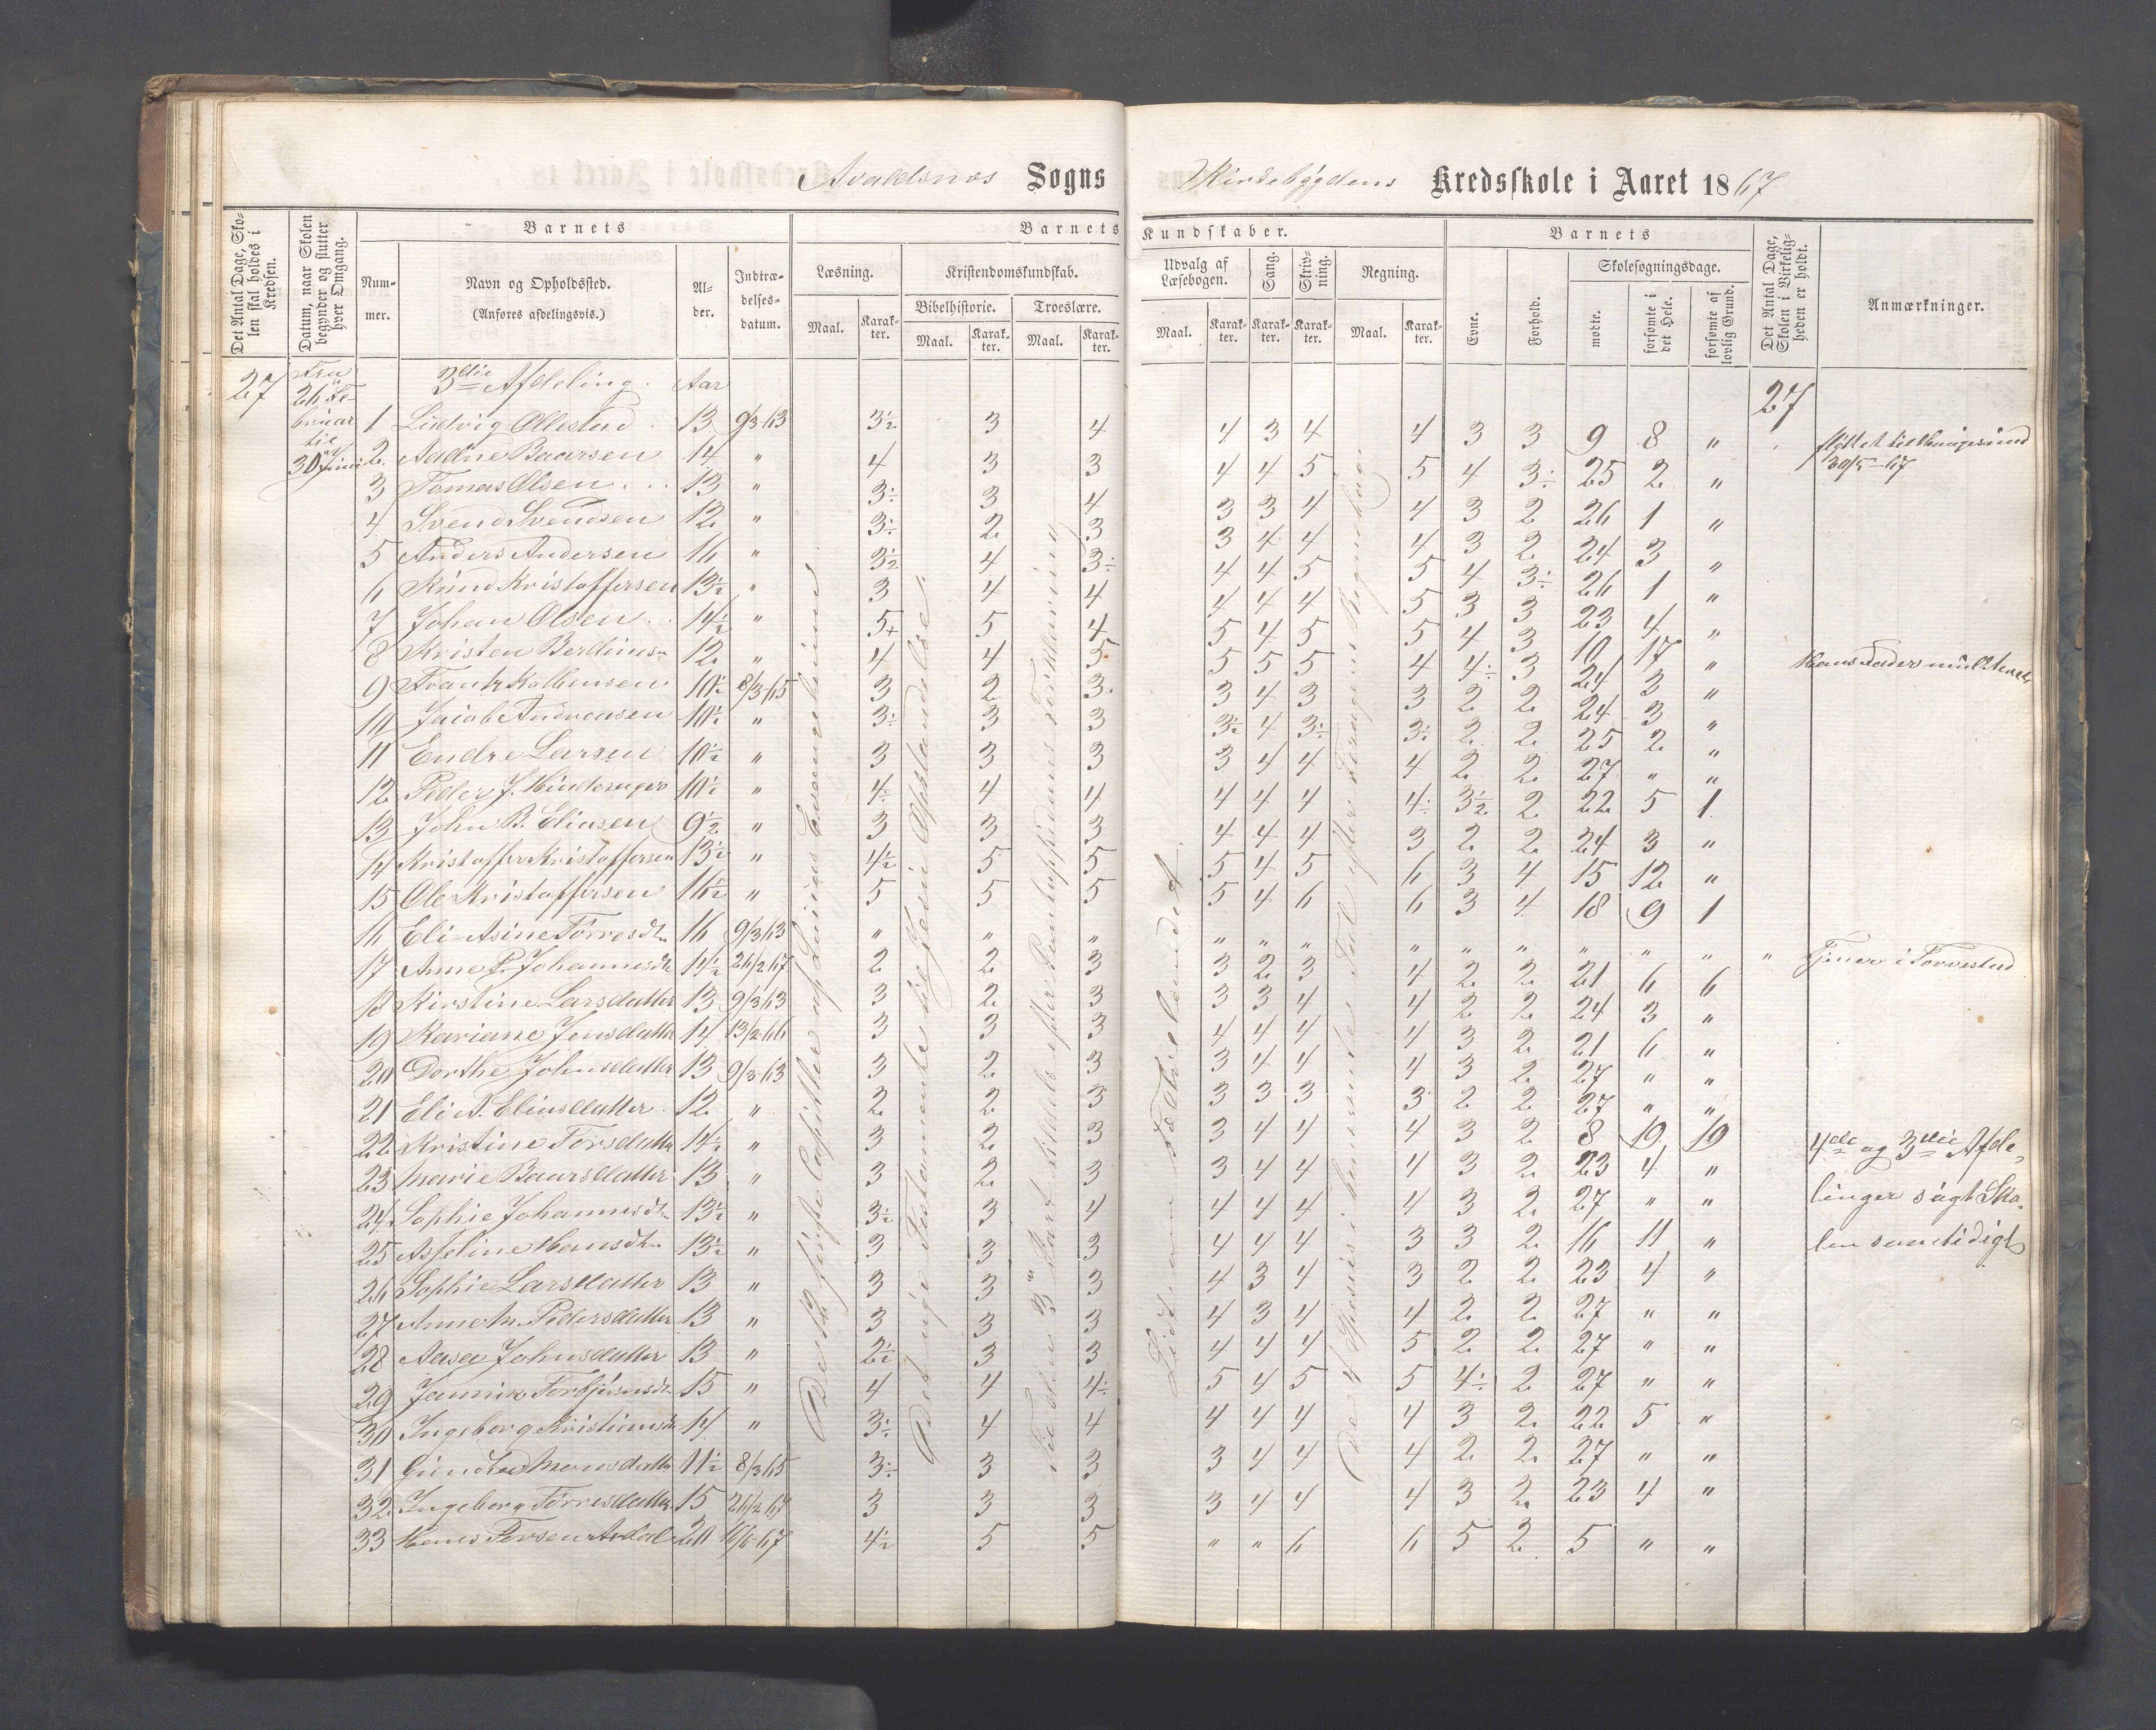 Avaldsnes Sogns Kirkebygdens Kredsskole i Aaret 1867
Det Antal Dage, Skolen skal holdes i Kredsen.
Datum, naar Skolen begynder og slutter hver Omgang.
Barnets
Nummer.
Navn og Opholdssted.
(Anføres afdelingsvis.)
Alder.
Indtrædelsesdatum.
Barnets Kundskaber.
Læsning.
Maal.
Karakter.
Kristendomskundskab.
Bibelhistorie.
Maal.
Karakter.
Troeslære.
Maal.
Karakter.
Udvalg af Læsebogen.
Maal.
Karakter.
Sang.
Karakter.
Skrivning.
Karakter.
Regning.
Maal.
Karakter.
Barnets
Evne.
Forhold.
Skolesøgningsdage.
mødte.
forsømte i det Hele.
forsømte af lovlig Grund.
Det Antal Dage, Skolen i Virkeligheden er holdt.
Anmærkninger.
27 26 Februar til 30 Juni 3die Afdeling. Aar 27
1 Ludvig Ollestad 13 9/3-63 3½ 3 4 4 3 4 4 3 3 9 8 " flyttet til Haugesund 30/5-67
2 Aadne Baarsen 14 " 4 3 3 4 4 5 5 4 3÷ 25 2 "
3 Tomas Olsen 13 " 3÷ 3 4 3 3 4 4 3 2 26 1 "
4 Svend Svendsen 12 " 3÷ 2 3 3 4 4 4 3 2 24 3 "
5 Anders Andersen 16 " 3½ 4 3÷ 4 4 5 5 4 3÷ 26 1 "
6 Knud Kristoffersen 13½ " 3 4 4 4 4 4 5 3 3 23 4 "
7 Johan Olsen 14½ " 5+ 5 4 5 4 5 5 4 3 10 17 "
8 Kristen Berdines 12 " 4 4 5 5 5 5 4 4÷ 3 24 3 "
9 Frantz Kolbensen 10½ 8/3-65 3 2 3 3 4 3 3 2 2 24 3 "
10 Jacob Andreasen 10½ " 3÷ 3 3 3½ 4 3÷ 3÷ 2 2 25 2 "
11 Endre Larsen 10½ " 3 3 3 3 4 4 4 2 2 27 " "
12 Peder J. Hinderager 10½ " 4÷ 4 4 4 4 4 4÷ 3½ 2 22 5 1
13 John B. Eliasen 9½ " 3 3 3 4 4 4 3 2 2 24 3 "
14 Kristoffer Kristoffersen 13½ " 4½ 5 5 5 4 5 6 3 4 15 12 "
15 Ole Kristoffersen 16½ " 5 5 5 5 4 6 6 3 4 18 9 1
16 Eli-Asine Tørresdtr 16 9/3 63 " " " " " " " " " " " " " Tjener i Torvestad
17 Anne P. Johannesdtr 14½ 26/2 67 2 2 3 3 2 3 4 2 2 21 6 6
18 Kirstine Larsdatter 13 9/3 63 3 2 3 3 3 4 4 2 2 24 3 "
19 Mariane Jensdatter 14 13/2-66 3 3 3 4 4 4 4 3 2 21 6 "
20 Dorthe Johnsdatter 13 9/3-63 3 2 3 3 4 4 4 3 2 27 " "
21 Eli A. Eliasdatter 12 " 2 2 3 3 3 3 3 2 2 27 " "
22 Kristine Torsdatter 14½ " 3 2 3 3 4 4 4 3 2 8 19 19
23 Marie Baarsdatter 13 " 3 2 3 3 4 4 4 3 2 23 4 "
24 Sophie Johannesdtr 13½ " 3½ 3 4 4 4 4 4 3 2 27 " "
25 Asseline Hansdtr 13½ " 3 3 3 4 4 4 3 3 2 16 11 "
26 Sophie Larsdatter 13 " 3 3 3 4 3 4 3 2 2 23 4 "
27 Anne M. Pedersdatter 13 " 3 3 3 4 3 4 4 2 2 27 " "
28 Aasa Johnsdatter 13 " 2½ 3 3 4 4 4 5 2 2 27 " "
29 Jannike Torbjørnsdtr 15 " 4 4 4÷ 5 4 5 5 4÷ 2 27 " "
30 Ingeborg Kristiansdtr 14 " 3÷ 4 4 4 4 4 4 3 2 22 5 "
31 Gundla Monsdatter 11½ 8/3 65 3÷ 3 3 3 4 4 4 2 2 27 " "
32 Ingeborg Tørresdatter 15 26/2 67 3 3 3 3 4 4 4 3 2 23 4 "
33 Hans Torsen Ardal 20 16/6-67 4½ 5 5 " " 6 6 5 2 5 " "
4de og 3die Afde-
linger søgt Sko-
len samtidigt
De 12 første Capitler af Luccas Evangelium
Det nye Testamente til Jesu Opstandelse.
Til den 3die Part tildels efter Pontoppidans Forklaring
Lidt om Fædrelandet
De 4 Species i benævnte Tal efter Regnebog